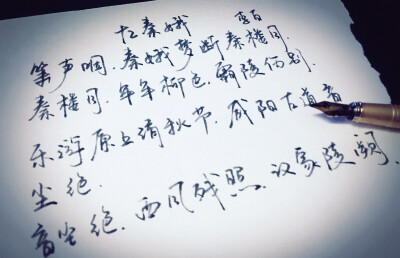 忆秦娥 李白
箫声咽.秦娥梦断秦楼月.
秦楼月.年年柳色.霸陵伤别.
乐游原上清秋节.咸阳古道音
尘绝.
音尘绝.西风残照.汉家陵阙.